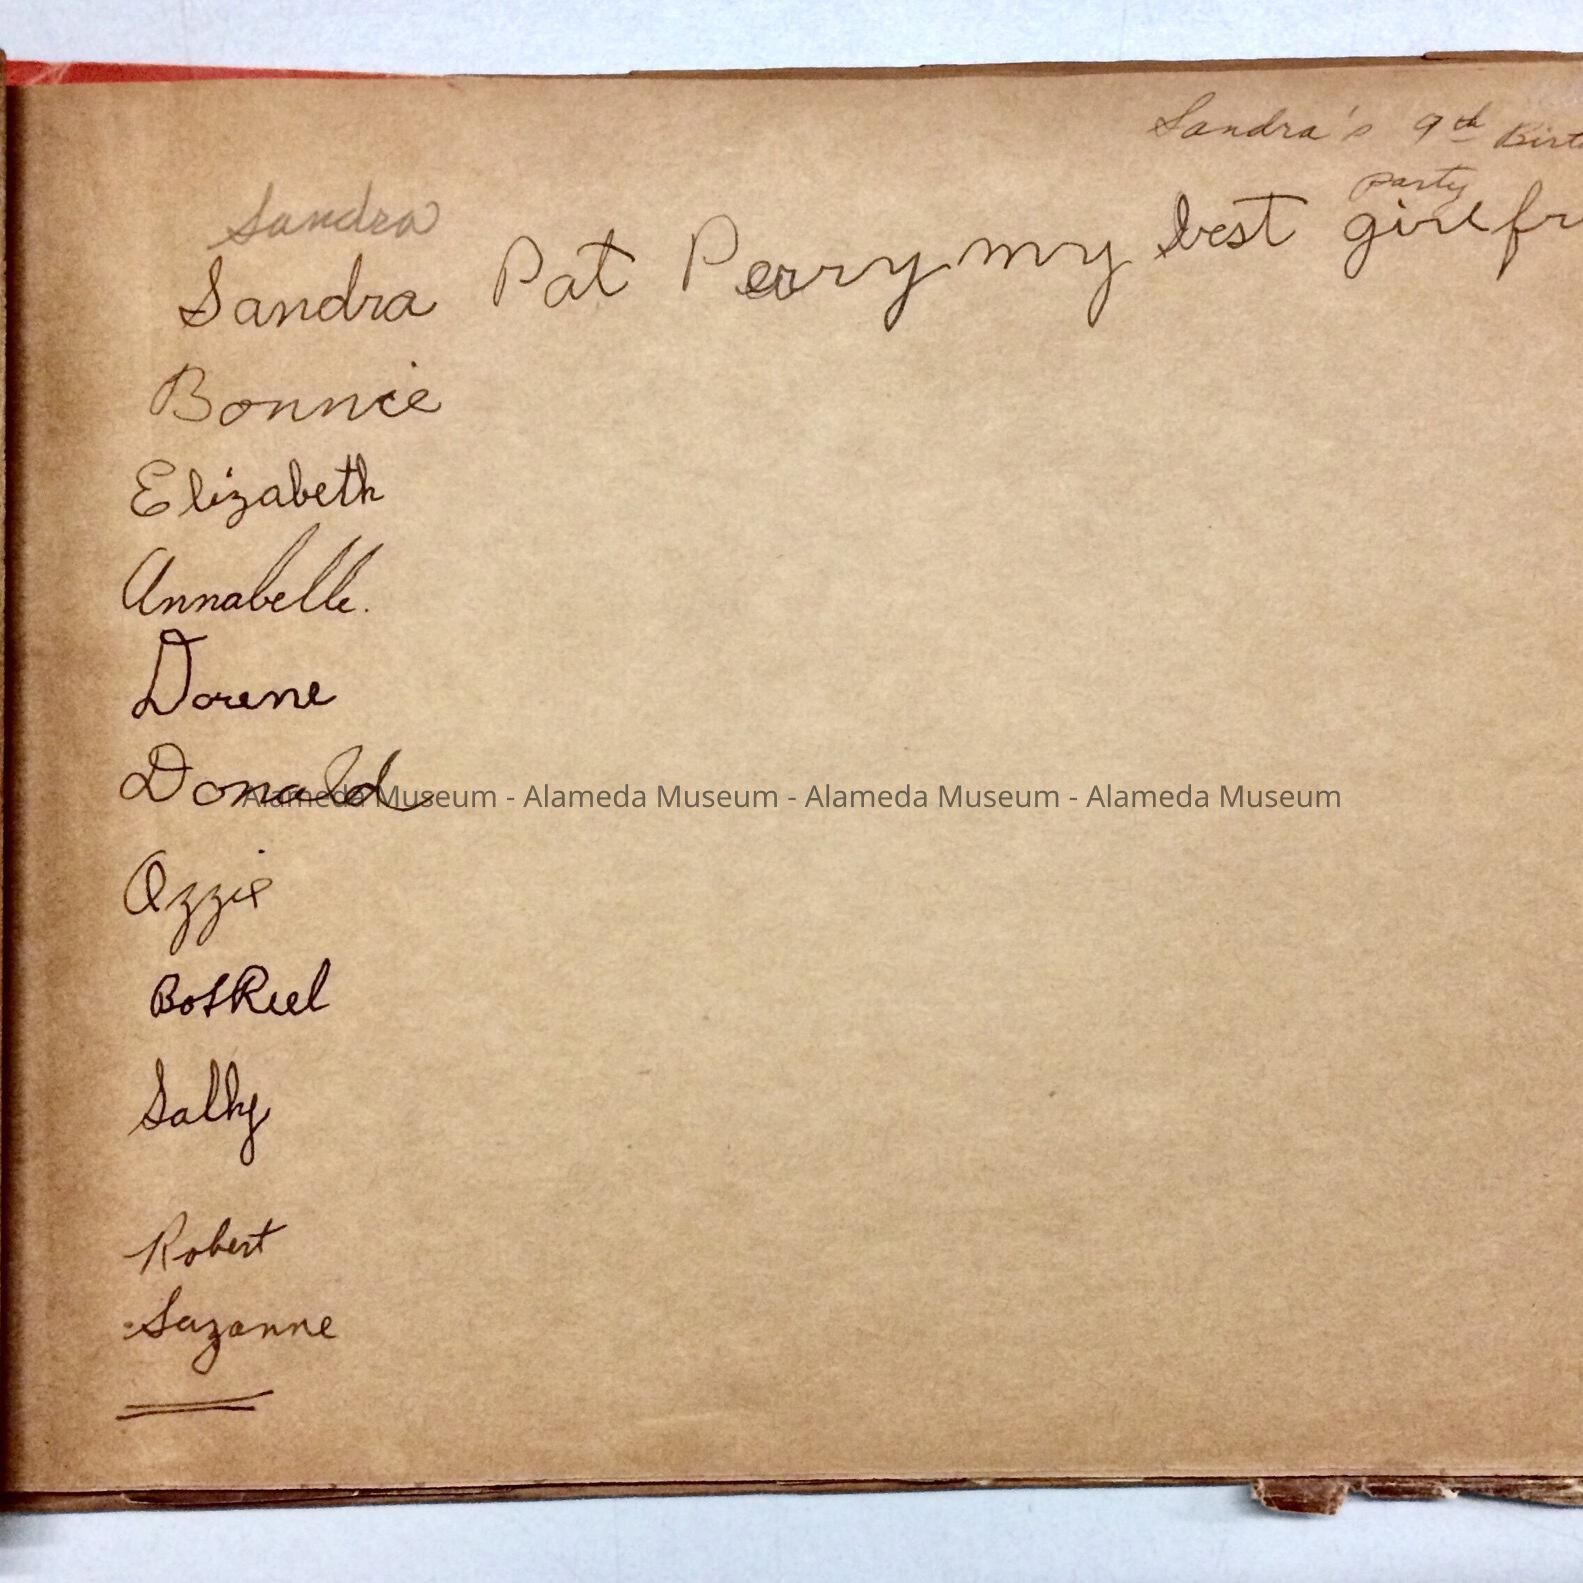 Sandra's 9th Birt
party
Sandra
Sandra Pat Perry my best girl fr
Bonnie
Elizabeth
Annabelle.
Dorene
Donald
Alameda Museum - Alameda Museum - Alameda Museum - Alameda Museum
Ozzie
Sally
Robert
Suzanne